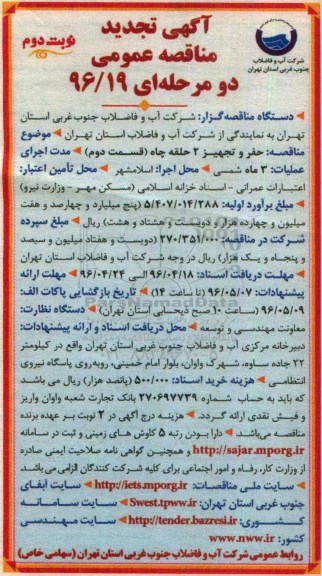 آگهی تجدید
مناقصه عمومی
دو مرحله‌ای ۹۶/۱۹
نوبت دوم
شرکت آب و فاضلاب
جنوب غربی استان تهران
دستگاه مناقصه‌گزار: شرکت آب و فاضلاب جنوب غربی استان
تهران به نمایندگی از شرکت آب و فاضلاب استان تهران موضوع
مناقصه: حفر و تجهیز ۲ حلقه چاه (قسمت دوم) مدت اجرای
عملیات: ۳ ماه شمسی محل اجرا: اسلامشهر محل تأمین اعتبار:
اعتبارات عمرانی - اسناد خزانه اسلامی (مسکن مهر - وزارت نیرو)
مبلغ برآورد اولیه: ۵/۴۰۷/۰۱۴/۲۸۸ (پنج میلیارد و چهارصد و هفت
میلیون و چهارده هزار و دویست و هشتاد و هشت) ریال مبلغ سپرده
شرکت در مناقصه: ۲۷۰/۳۵۱/۰۰۰ (دویست و هفتاد میلیون و سیصد
و پنجاه و یک هزار) ریال در وجه شرکت آب و فاضلاب استان تهران
مهلت دریافت اسناد: ۹۶/۰۴/۱۸ الی ۹۶/۰۴/۲۴ مهلت ارائه
پیشنهادات: ۹۶/۰۵/۰۷ (تا ساعت ۱۴) تاریخ بازگشایی پاکات الف:
۹۶/۰۵/۰۹ (ساعت ۱۰ صبح ذیحسابی استان تهران) دستگاه نظارت:
معاونت مهندسی و توسعه محل دریافت اسناد و ارائه پیشنهادات:
دبیرخانه مرکزی آب و فاضلاب جنوب غربی استان تهران واقع در کیلومتر
۲۲ جاده ساوه، شهرک واوان، بلوار امام خمینی، روبه‌روی پاسگاه نیروی
انتظامی هزینه خرید اسناد: ۵۰۰/۰۰۰ (پانصد هزار) ریال می باشد
که باید به حساب شماره ۲۷۰۶۹۷۷۳۹ بانک تجارت شعبه واوان واریز
و فیش نقدی ارائه گردد. هزینه درج آگهی در ۲ نوبت بر عهده برنده
مناقصه می‌باشد. دارا بودن رتبه ۵ کاوش های زمینی و ثبت در سامانه
http://sajar.mporg.ir و همچنین گواهی نامه صلاحیت ایمنی صادره
از وزارت کار، رفاه و امور اجتماعی برای کلیه شرکت کنندگان الزامی می‌باشد.
سایت ملی مناقصات: http://iets.mporg.ir سایت آبفای
جنوب غربی استان تهران: Swest.tpww.ir سایت سامانه
کشوری: http://tender.bazresi.ir سایت مهندسی
کشور: www.nww.ir
روابط عمومی شرکت آب و فاضلاب جنوب غربی استان تهران (سهامی خاص)